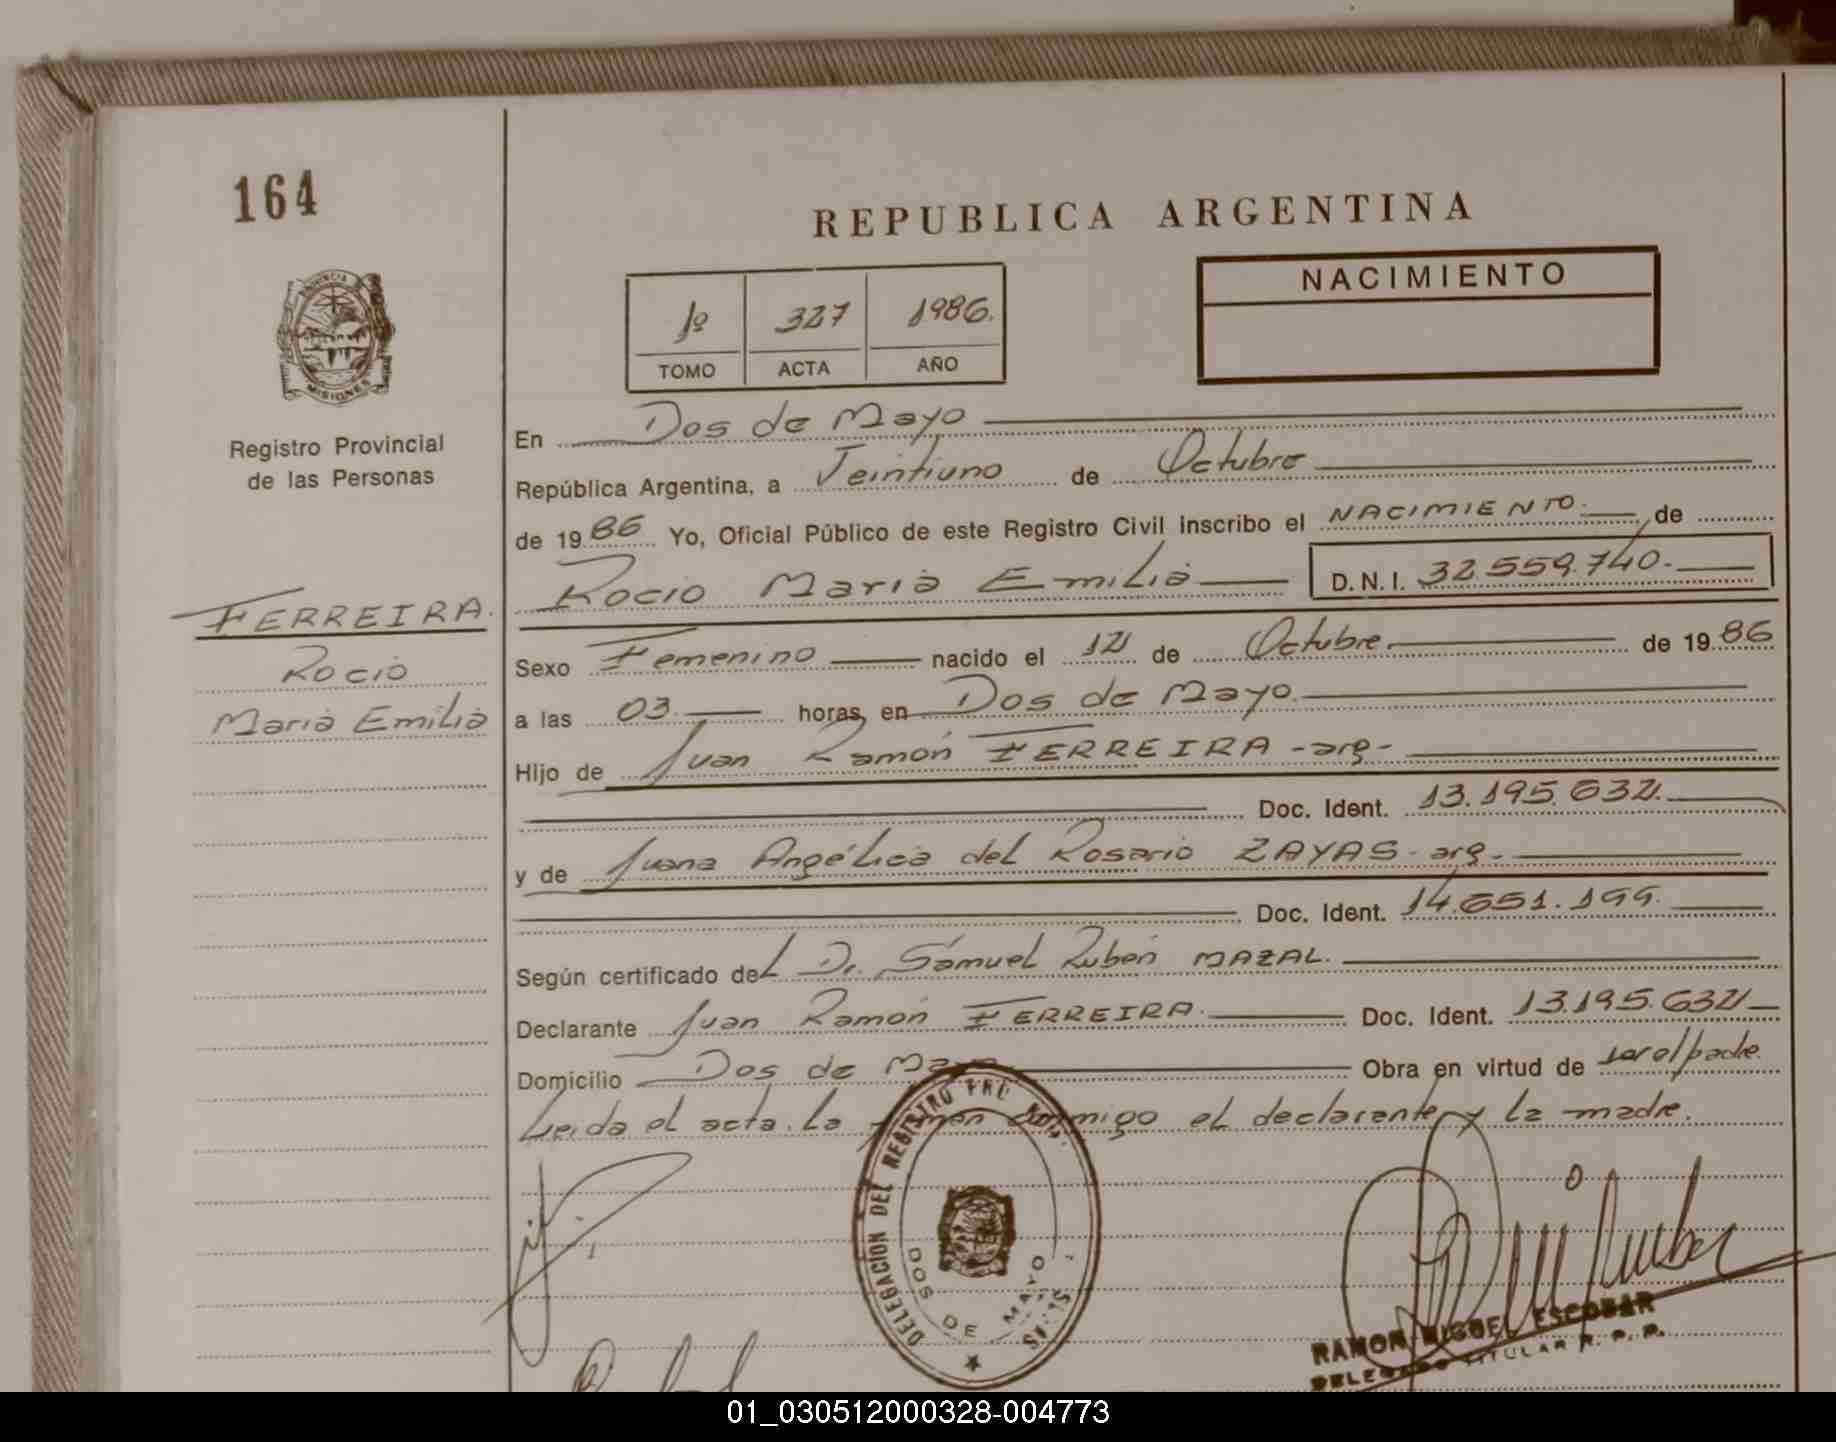 164
REPUBLICA ARGENTINA
PROVINCIA DE
MISIONES
Registro Provincial
de las Personas
1º 327 1986.
TOMO ACTA AÑO
NACIMIENTO
En Dos de Mayo
República Argentina, a Veintiuno de Octubre
de 1986 Yo, Oficial Público de este Registro Civil inscribo el NACIMIENTO. de
Rocio Maria Emilia D.N.I. 32.559.740.-
FERREIRA.
Rocio
Maria Emilia
Sexo Femenino nacido el 12 de Octubre de 1986
a las 03. horas, en Dos de Mayo.
Hijo de Juan Ramón FERREIRA -arg-
Doc. Ident. 13.195.632.
y de Juana Angélica del Rosario ZAYAS - arg.
Doc. Ident. 14.651.199.
Según certificado del Dr. Samuel Rubén MAZAL.
Declarante Juan Ramón FERREIRA. Doc. Ident. 13.195.632
Domicilio Dos de Mayo Obra en virtud de ser el padre.
Leida el acta. La firman conmigo el declarante y la madre.
DELEGACION DEL REGISTRO
DOS DE MAYO
RAMON MIGUEL ESCOBAR
DELEGADO TITULAR R. P. P.
01_030512000328-004773